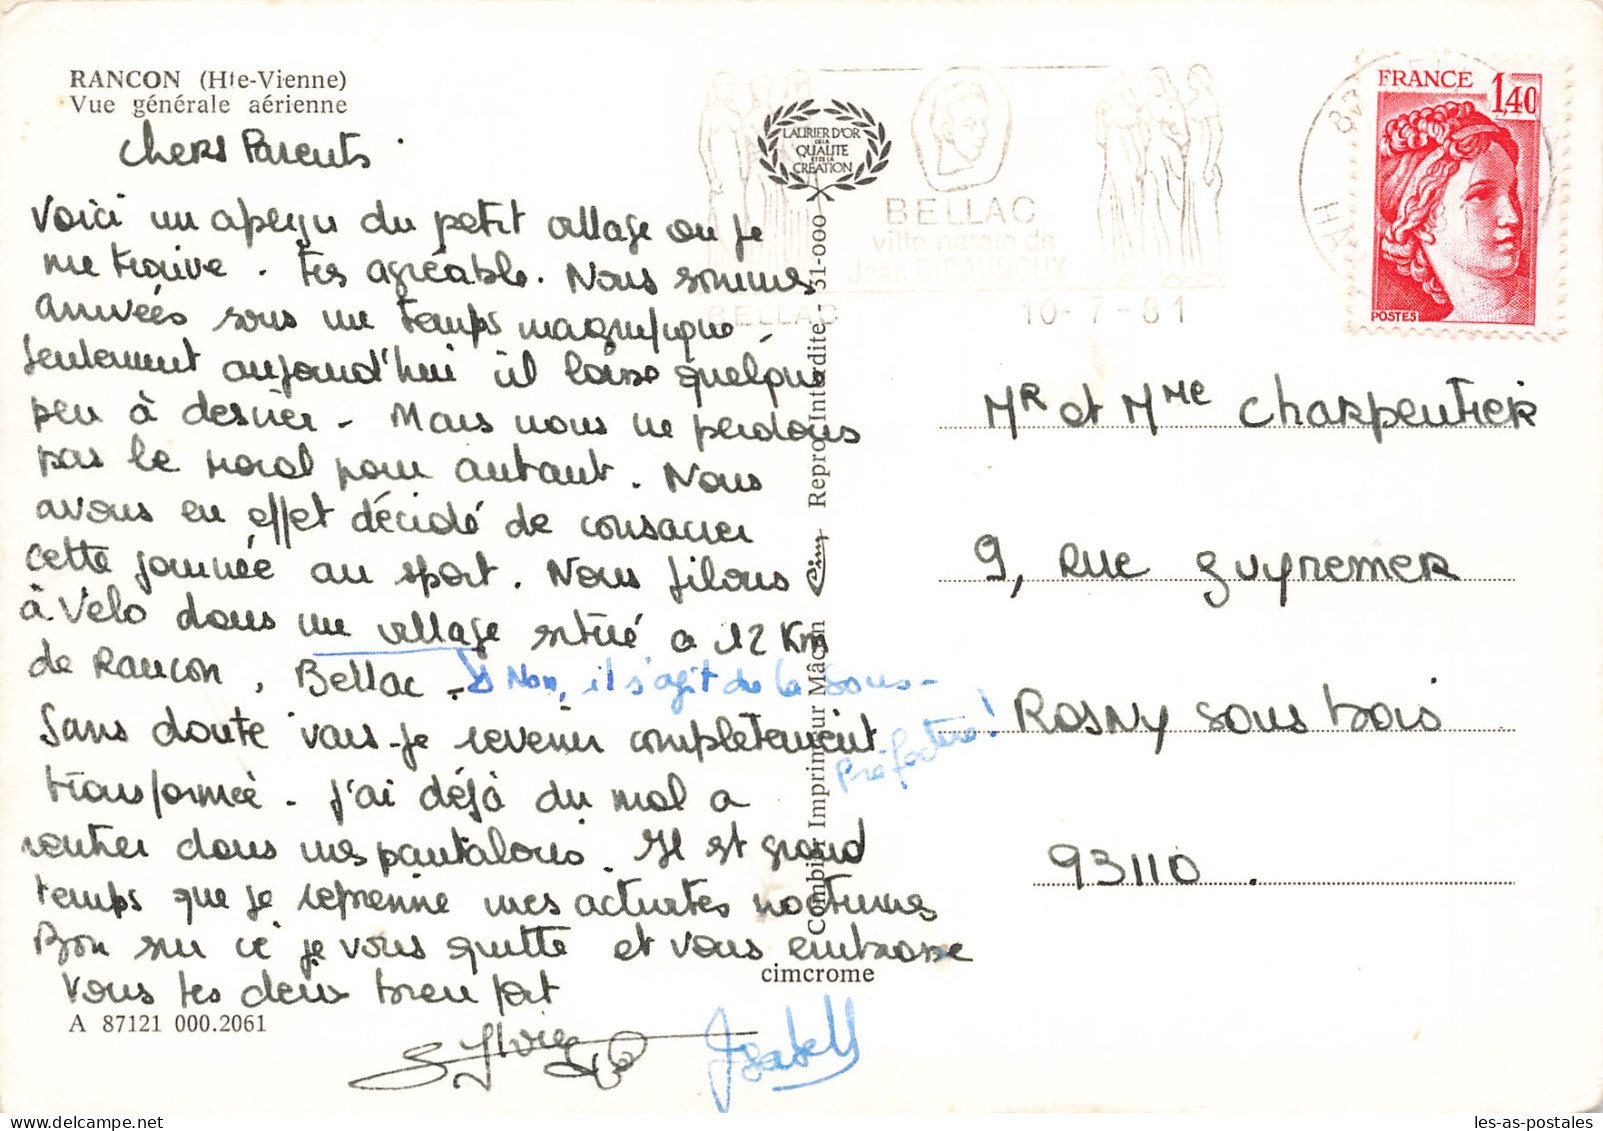 RANCON (Hte-Vienne)
Vue générale aérienne
Chers Parents.
Voici un aperçu du petit village ou je
me trouve. Très agréable. Nous sommes
arrivées sous un temps magnifique,
seulement aujourd'hui il laisse quelque
peu à desirer - Mais nous ne perdons
pas le moral pour autant. Nous
avons en effet décidé de consacrer
cette journée au sport. Nous filons
à Velo dans un village situé a 12 Km
de Rancon, Bellac.
Non, il s'agit de la sous-
Préfecture!
Sans doute vais-je revenir complètement
transformée - J'ai déjà du mal a
rentrer dans mes pantalons. Il est grand
temps que je reprenne mes activités nocturnes
Bon sur ce je vous quitte et vous embrasse
vous tes deux bien fort
Sylvie
Isabelle
A 87121 000.2061
LAURIER D'OR
DE LA
QUALITE
ET DE LA
CREATION
Combier Imprimeur Mâcon Cim Repro Interdite - 31-000
cimcrome
BELLAC
ville natale de
Jean GIRAUDOUX
BELLAC
10-7-81
87 BELLAC
FRANCE
1,40
POSTES
Mr et Mme Charpentier
9, Rue Guynemer
Rosny sous bois
93110.
les-as-postales